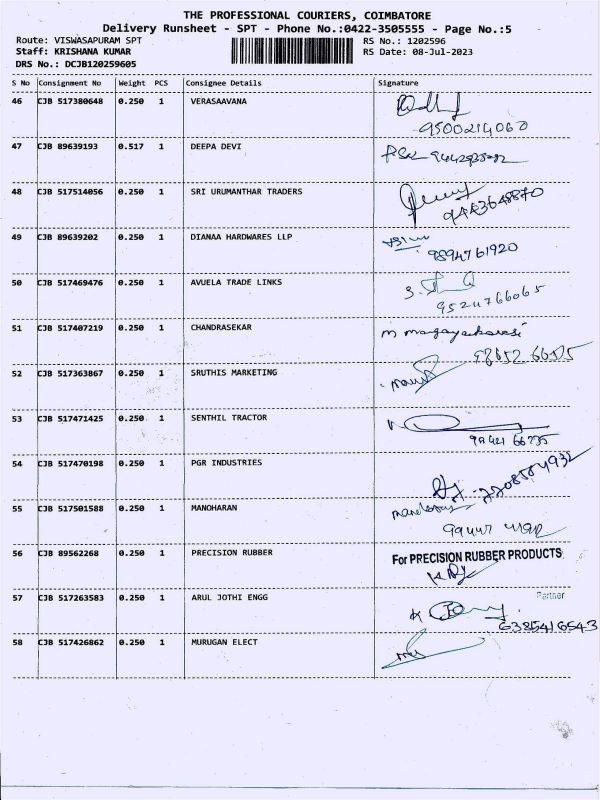 THE PROFESSIONAL COURIERS, COIMBATORE
Delivery Runsheet - SPT - Phone No.:0422-3505555 - Page No.:5
Route: VISWASAPURAM SPT RS No.: 1202596
Staff: KRISHANA KUMAR RS Date: 08-Jul-2023
DRS No.: DCJB120259605
S No Consignment No Weight PCS Consignee Details Signature
46 CJB 517380648 0.250 1 VERASAAVANA
9500214060
47 CJB 89639193 0.517 1 DEEPA DEVI
48 CJB 517514056 0.250 1 SRI URUMANTHAR TRADERS
9443648870
49 CJB 89639202 0.250 1 DIANAA HARDWARES LLP
9894761920
50 CJB 517469476 0.250 1 AVUELA TRADE LINKS
9524766065
51 CJB 517407219 0.250 1 CHANDRASEKAR
52 CJB 517363867 0.250 1 SRUTHIS MARKETING
53 CJB 517471425 0.250 1 SENTHIL TRACTOR
54 CJB 517470198 0.250 1 PGR INDUSTRIES
55 CJB 517501588 0.250 1 MANOHARAN
56 CJB 89562268 0.250 1 PRECISION RUBBER For PRECISION RUBBER PRODUCTS
57 CJB 517263583 0.250 1 ARUL JOTHI ENGG Partner
6385416543
58 CJB 517426862 0.250 1 MURUGAN ELECT